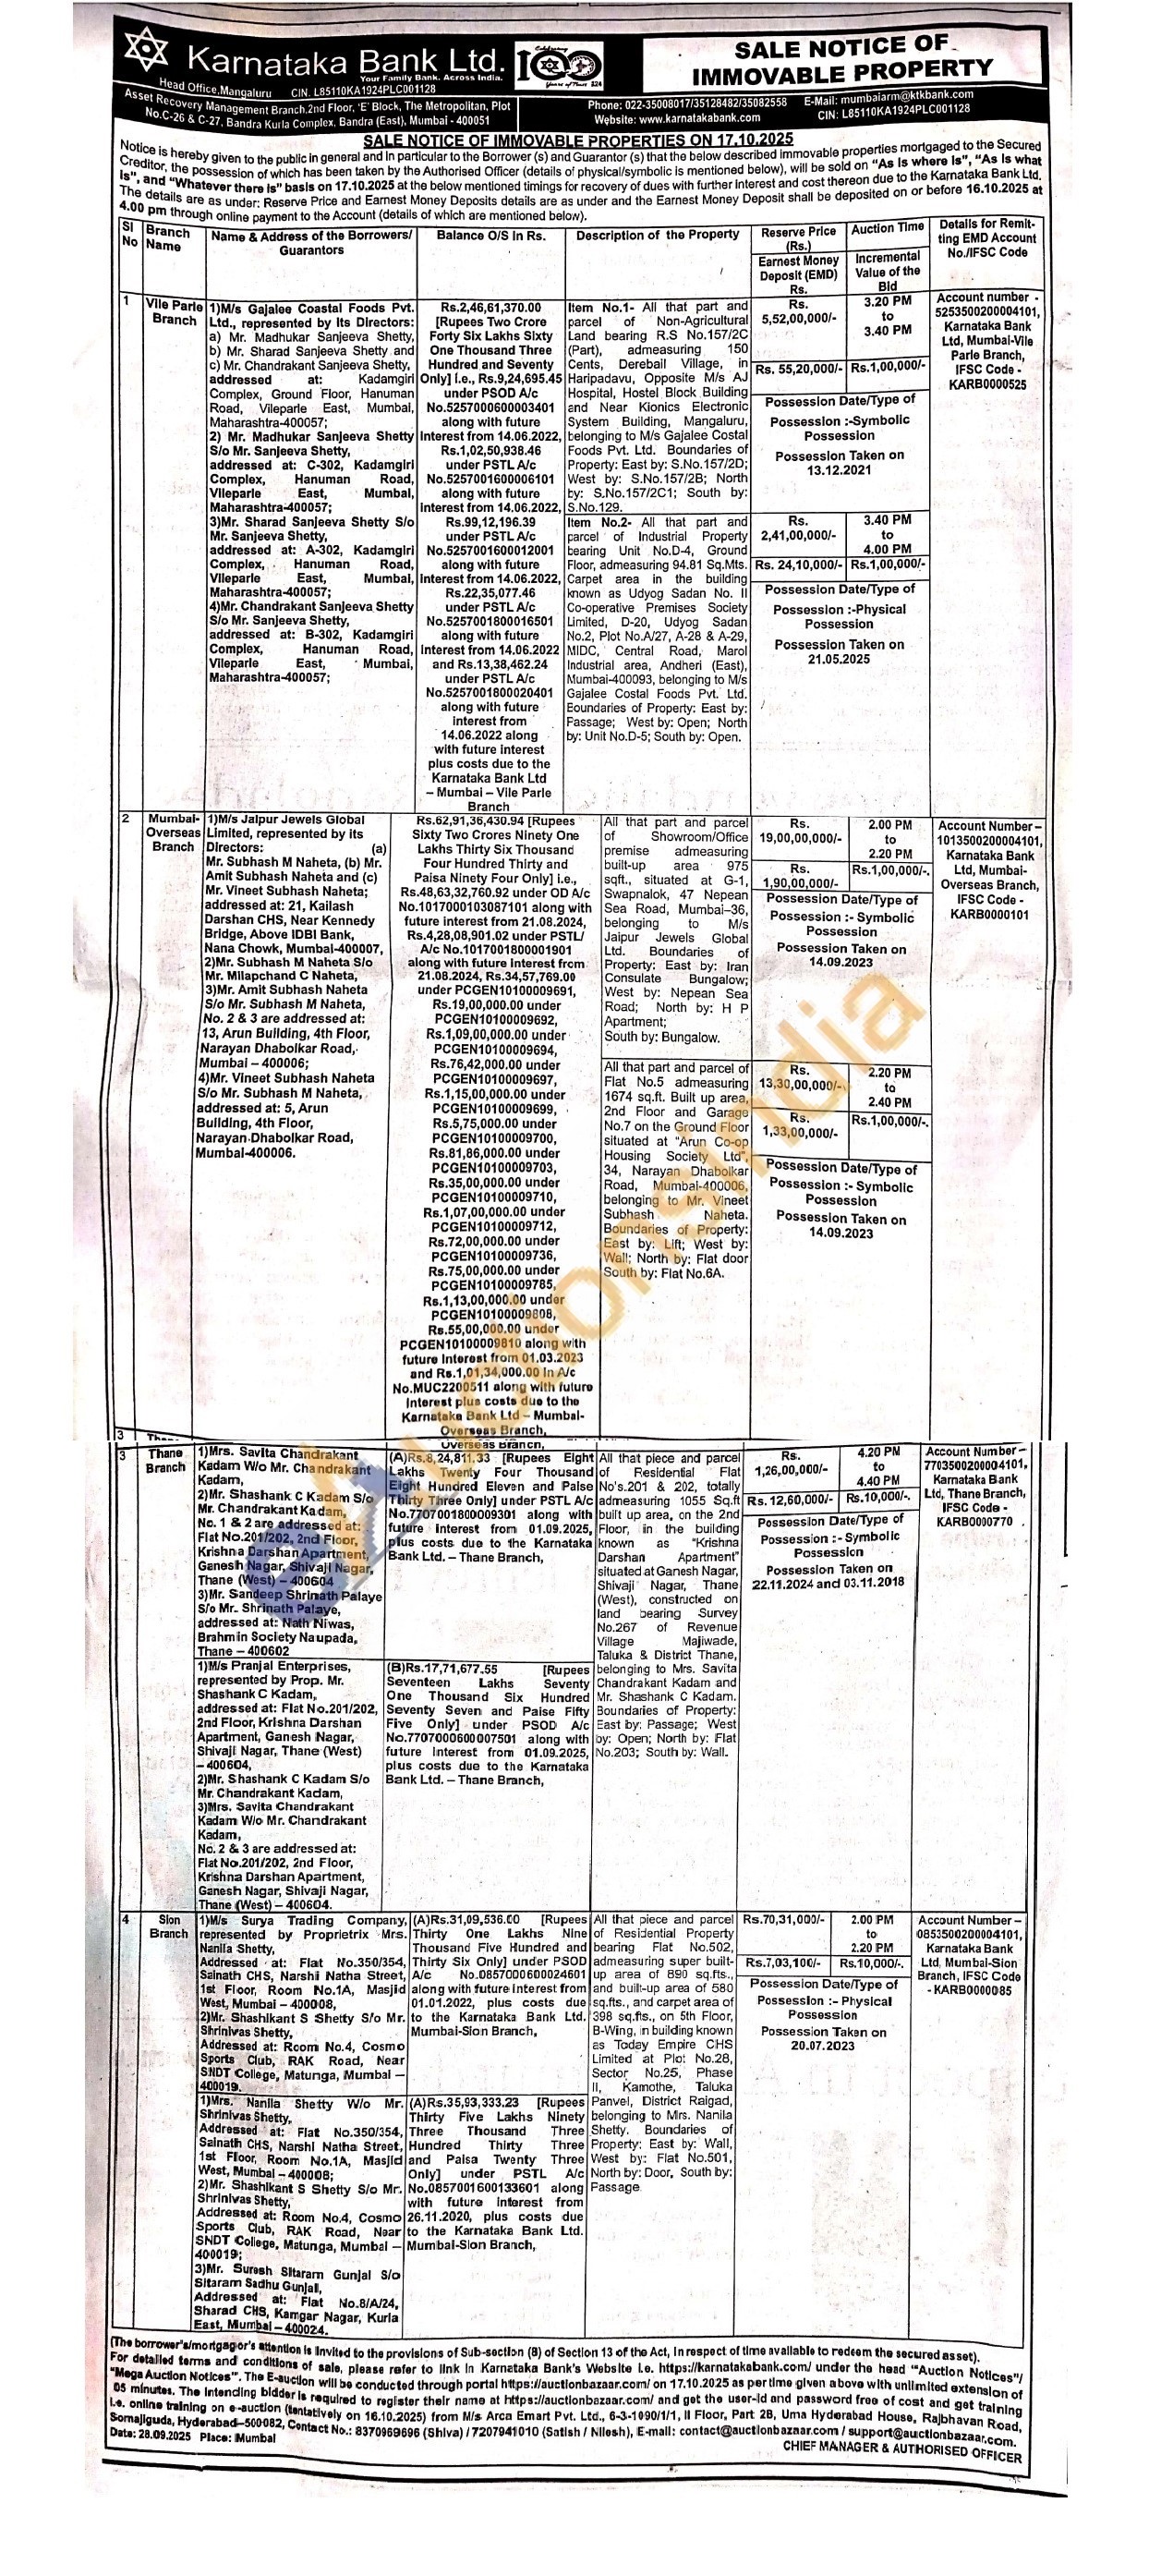 Karnataka Bank Ltd.
Your Family Bank. Across India.
Head Office,Mangaluru CIN. L85110KA1924PLC001128
Asset Recovery Management Branch,2nd Floor, 'E' Block, The Metropolitan, Plot
No.C-26 & C-27, Bandra Kurla Complex, Bandra (East), Mumbai - 400051
100
SALE NOTICE OF
IMMOVABLE PROPERTY
Phone: 022-35008017/35128482/35082558 E-Mail: mumbaiarm@ktkbank.com
Website: www.karnatakabank.com CIN: L85110KA1924PLC001128
SALE NOTICE OF IMMOVABLE PROPERTIES ON 17.10.2025
Notice is hereby given to the public in general and in particular to the Borrower (s) and Guarantor (s) that the below described immovable properties mortgaged to the Secured
Creditor, the possession of which has been taken by the Authorised Officer (details of physical/symbolic is mentioned below), will be sold on "As is where is", "As is what
is", and "Whatever there is" basis on 17.10.2025 at the below mentioned timings for recovery of dues with further interest and cost thereon due to the Karnataka Bank Ltd.
The details are as under: Reserve Price and Earnest Money Deposits details are as under and the Earnest Money Deposit shall be deposited on or before 16.10.2025 at
4.00 pm through online payment to the Account (details of which are mentioned below).
Sl No
Branch Name
Name & Address of the Borrowers/
Guarantors
Balance O/S in Rs.
Description of the Property
Reserve Price
(Rs.)
Earnest Money
Deposit (EMD)
Rs.
Auction Time
Incremental
Value of the
Bid
Details for Remit-
ting EMD Account
No./IFSC Code
1
Vile Parle
Branch
1)M/s Gajalee Coastal Foods Pvt.
Ltd., represented by Its Directors:
a) Mr. Madhukar Sanjeeva Shetty,
b) Mr. Sharad Sanjeeva Shetty and
c) Mr. Chandrakant Sanjeeva Shetty,
addressed at: Kadamgiri
Complex, Ground Floor, Hanuman
Road, Vileparle East, Mumbai,
Maharashtra-400057;
2) Mr. Madhukar Sanjeeva Shetty
S/o Mr. Sanjeeva Shetty,
addressed at: C-302, Kadamgiri
Complex, Hanuman Road,
Vileparle East, Mumbai,
Maharashtra-400057;
3)Mr. Sharad Sanjeeva Shetty S/o
Mr. Sanjeeva Shetty,
addressed at: A-302, Kadamgiri
Complex, Hanuman Road,
Vileparle East, Mumbai,
Maharashtra-400057;
4)Mr. Chandrakant Sanjeeva Shetty
S/o Mr. Sanjeeva Shetty,
addressed at: B-302, Kadamgiri
Complex, Hanuman Road,
Vileparle East, Mumbai,
Maharashtra-400057;
Rs.2,46,61,370.00
[Rupees Two Crore
Forty Six Lakhs Sixty
One Thousand Three
Hundred and Seventy
Only] i.e., Rs.9,24,695.45
under PSOD A/c
No.5257000600003401
along with future
Interest from 14.06.2022,
Rs.1,02,50,938.46
under PSTL A/c
No.5257001600006101
along with future
Interest from 14.06.2022,
Rs.99,12,196.39
under PSTL A/c
No.5257001600012001
along with future
Interest from 14.06.2022,
Rs.22,35,077.46
under PSTL A/c
No.5257001800016501
along with future
Interest from 14.06.2022
and Rs.13,38,462.24
under PSTL A/c
No.5257001800020401
along with future
interest from
14.06.2022 along
with future interest
plus costs due to the
Karnataka Bank Ltd
– Mumbai – Vile Parle
Branch
Item No.1- All that part and
parcel of Non-Agricultural
Land bearing R.S No.157/2C
(Part), admeasuring 150
Cents, Derebail Village, in
Haripadavu, Opposite M/s AJ
Hospital, Hostel Block Building
and Near Kionics Electronic
System Building, Mangaluru,
belonging to M/s Gajalee Costal
Foods Pvt. Ltd. Boundaries of
Property: East by: S.No.157/2D;
West by: S.No.157/2B; North
by: S.No.157/2C1; South by:
S.No.129.
Rs.
5,52,00,000/-
3.20 PM
to
3.40 PM
Rs. 55,20,000/-
Rs.1,00,000/-
Possession Date/Type of
Possession :-Symbolic
Possession
Possession Taken on
13.12.2021
Account number -
5253500200004101,
Karnataka Bank
Ltd, Mumbai-Vile
Parle Branch,
IFSC Code -
KARB0000525
Item No.2- All that part and
parcel of Industrial Property
bearing Unit No.D-4, Ground
Floor, admeasuring 94.81 Sq.Mts.
Carpet area in the building
known as Udyog Sadan No. II
Co-operative Premises Society
Limited, D-20, Udyog Sadan
No.2, Plot No.A/27, A-28 & A-29,
MIDC, Central Road, Marol
Industrial area, Andheri (East),
Mumbai-400093, belonging to M/s
Gajalee Costal Foods Pvt. Ltd.
Boundaries of Property: East by:
Passage; West by: Open; North
by: Unit No.D-5; South by: Open.
Rs.
2,41,00,000/-
3.40 PM
to
4.00 PM
Rs. 24,10,000/-
Rs.1,00,000/-
Possession Date/Type of
Possession :-Physical
Possession
Possession Taken on
21.05.2025
2
Mumbai-
Overseas
Branch
1)M/s Jaipur Jewels Global
Limited, represented by its
Directors: (a)
Mr. Subhash M Naheta, (b) Mr.
Amit Subhash Naheta and (c)
Mr. Vineet Subhash Naheta;
addressed at: 21, Kailash
Darshan CHS, Near Kennedy
Bridge, Above IDBI Bank,
Nana Chowk, Mumbai-400007,
2)Mr. Subhash M Naheta S/o
Mr. Milapchand C Naheta,
3)Mr. Amit Subhash Naheta
S/o Mr. Subhash M Naheta,
No. 2 & 3 are addressed at:
13, Arun Building, 4th Floor,
Narayan Dhabolkar Road,
Mumbai – 400006;
4)Mr. Vineet Subhash Naheta
S/o Mr. Subhash M Naheta,
addressed at: 5, Arun
Building, 4th Floor,
Narayan Dhabolkar Road,
Mumbai-400006.
Rs.62,91,36,430.94 [Rupees
Sixty Two Crores Ninety One
Lakhs Thirty Six Thousand
Four Hundred Thirty and
Paisa Ninety Four Only] i.e.,
Rs.48,63,32,760.92 under OD A/c
No.1017000103087101 along with
future interest from 21.08.2024,
Rs.4,28,08,901.02 under PSTL/
A/c No.1017001800001901
along with future interest from
21.08.2024, Rs.34,57,769.00
under PCGEN10100009691,
Rs.19,00,000.00 under
PCGEN10100009692,
Rs.1,09,00,000.00 under
PCGEN10100009694,
Rs.76,42,000.00 under
PCGEN10100009697,
Rs.1,15,00,000.00 under
PCGEN10100009699,
Rs.5,75,000.00 under
PCGEN10100009700,
Rs.81,86,000.00 under
PCGEN10100009703,
Rs.35,00,000.00 under
PCGEN10100009710,
Rs.1,07,00,000.00 under
PCGEN10100009712,
Rs.72,00,000.00 under
PCGEN10100009736,
Rs.75,00,000.00 under
PCGEN10100009785,
Rs.1,13,00,000.00 under
PCGEN10100009808,
Rs.55,00,000.00 under
PCGEN10100009810 along with
future Interest from 01.03.2023
and Rs.1,01,34,000.00 In A/c
No.MUC2200511 along with future
Interest plus costs due to the
Karnataka Bank Ltd – Mumbai-
Overseas Branch,
All that part and parcel
of Showroom/Office
premise admeasuring
built-up area 975
sqft., situated at G-1,
Swapnalok, 47 Nepean
Sea Road, Mumbai–36,
belonging to M/s
Jaipur Jewels Global
Ltd. Boundaries of
Property: East by: Iran
Consulate Bungalow;
West by: Nepean Sea
Road; North by: H P
Apartment;
South by: Bungalow.
Rs.
19,00,00,000/-
2.00 PM
to
2.20 PM
Rs.
1,90,00,000/-
Rs.1,00,000/-.
Possession Date/Type of
Possession :- Symbolic
Possession
Possession Taken on
14.09.2023
Account Number–
1013500200004101,
Karnataka Bank
Ltd, Mumbai-
Overseas Branch,
IFSC Code -
KARB0000101
All that part and parcel of
Flat No.5 admeasuring
1674 sq.ft. Built up area,
2nd Floor and Garage
No.7 on the Ground Floor
situated at "Arun Co-op
Housing Society Ltd",
34, Narayan Dhabolkar
Road, Mumbai-400006,
belonging to Mr. Vineet
Subhash Naheta.
Boundaries of Property:
East by: Lift; West by:
Wall; North by: Flat door
South by: Flat No.6A.
Rs.
13,30,00,000/-
2.20 PM
to
2.40 PM
Rs.
1,33,00,000/-
Rs.1,00,000/-.
Possession Date/Type of
Possession :- Symbolic
Possession
Possession Taken on
14.09.2023
eAuctionsIndia
3
Overseas Branch,
3
Thane
Branch
1)Mrs. Savita Chandrakant
Kadam W/o Mr. Chandrakant
Kadam,
2)Mr. Shashank C Kadam S/o
Mr. Chandrakant Kadam,
No. 1 & 2 are addressed at:
Flat No.201/202, 2nd Floor,
Krishna Darshan Apartment,
Ganesh Nagar, Shivaji Nagar,
Thane (West) – 400604
3)Mr. Sandeep Shrinath Palaye
S/o Mr. Shrinath Palaye,
addressed at: Nath Niwas,
Brahmin Society Naupada,
Thane – 400602
(A)Rs.8,24,811.33 [Rupees Eight
Lakhs Twenty Four Thousand
Eight Hundred Eleven and Paise
Thirty Three Only] under PSTL A/c
No.7707001800009301 along with
future Interest from 01.09.2025,
plus costs due to the Karnataka
Bank Ltd. – Thane Branch,
All that piece and parcel
of Residential Flat
No's.201 & 202, totally
admeasuring 1055 Sq.ft
built up area, on the 2nd
Floor, in the building
known as "Krishna
Darshan Apartment"
situated at Ganesh Nagar,
Shivaji Nagar, Thane
(West), constructed on
land bearing Survey
No.267 of Revenue
Village Majiwade,
Taluka & District Thane,
belonging to Mrs. Savita
Chandrakant Kadam and
Mr. Shashank C Kadam.
Boundaries of Property:
East by: Passage; West
by: Open; North by: Flat
No.203; South by: Wall.
Rs.
1,26,00,000/-
4.20 PM
to
4.40 PM
Rs. 12,60,000/-
Rs.10,000/-.
Possession Date/Type of
Possession :- Symbolic
Possession
Possession Taken on
22.11.2024 and 03.11.2018
Account Number–
7703500200004101,
Karnataka Bank
Ltd, Thane Branch,
IFSC Code -
KARB0000770
1)M/s Pranjal Enterprises,
represented by Prop. Mr.
Shashank C Kadam,
addressed at: Flat No.201/202,
2nd Floor, Krishna Darshan
Apartment, Ganesh Nagar,
Shivaji Nagar, Thane (West)
– 400604,
2)Mr. Shashank C Kadam S/o
Mr. Chandrakant Kadam,
3)Mrs. Savita Chandrakant
Kadam W/o Mr. Chandrakant
Kadam,
No. 2 & 3 are addressed at:
Flat No.201/202, 2nd Floor,
Krishna Darshan Apartment,
Ganesh Nagar, Shivaji Nagar,
Thane (West) – 400604.
(B)Rs.17,71,677.55 [Rupees
Seventeen Lakhs Seventy
One Thousand Six Hundred
Seventy Seven and Paise Fifty
Five Only] under PSOD A/c
No.7707000600007501 along with
future Interest from 01.09.2025,
plus costs due to the Karnataka
Bank Ltd. – Thane Branch,
4
Sion
Branch
1)M/s Surya Trading Company,
represented by Proprietrix Mrs.
Nanila Shetty,
Addressed at: Flat No.350/354,
Sainath CHS, Narshi Natha Street,
1st Floor, Room No.1A, Masjid
West, Mumbai – 400008,
2)Mr. Shashikant S Shetty S/o Mr.
Shrinivas Shetty,
Addressed at: Room No.4, Cosmo
Sports Club, RAK Road, Near
SNDT College, Matunga, Mumbai –
400019.
(A)Rs.31,09,536.00 [Rupees
Thirty One Lakhs Nine
Thousand Five Hundred and
Thirty Six Only] under PSOD
A/c No.0857000600024601
along with future Interest from
01.01.2022, plus costs due
to the Karnataka Bank Ltd.
Mumbai-Sion Branch,
All that piece and parcel
of Residential Property
bearing Flat No.502,
admeasuring super built-
up area of 890 sq.fts.,
and built-up area of 580
sq.fts., and carpet area of
398 sq.fts., on 5th Floor,
B-Wing, in building known
as Today Empire CHS
Limited at Plot No.28,
Sector No.25, Phase
II, Kamothe, Taluka
Panvel, District Raigad,
belonging to Mrs. Nanila
Shetty. Boundaries of
Property: East by: Wall,
West by: Flat No.501,
North by: Door, South by:
Passage
Rs.70,31,000/-
2.00 PM
to
2.20 PM
Rs.7,03,100/-
Rs.10,000/-
Possession Date/Type of
Possession :– Physical
Possession
Possession Taken on
20.07.2023
Account Number –
0853500200004101,
Karnataka Bank
Ltd, Mumbai-Sion
Branch, IFSC Code
- KARB0000085
1)Mrs. Nanila Shetty W/o Mr.
Shrinivas Shetty,
Addressed at: Flat No.350/354,
Sainath CHS, Narshi Natha Street,
1st Floor, Room No.1A, Masjid
West, Mumbai – 400008;
2)Mr. Shashikant S Shetty S/o Mr.
Shrinivas Shetty,
Addressed at: Room No.4, Cosmo
Sports Club, RAK Road, Near
SNDT College, Matunga, Mumbai –
400019;
3)Mr. Suresh Sitaram Gunjal S/o
Sitaram Sadhu Gunjal,
Addressed at: Flat No.8/A/24,
Sharad CHS, Kamgar Nagar, Kurla
East, Mumbai – 400024.
(A)Rs.35,93,333.23 [Rupees
Thirty Five Lakhs Ninety
Three Thousand Three
Hundred Thirty Three
and Paisa Twenty Three
Only] under PSTL A/c
No.0857001600133601 along
with future Interest from
26.11.2020, plus costs due
to the Karnataka Bank Ltd.
Mumbai-Sion Branch,
(The borrower's/mortgagor's attention is invited to the provisions of Sub-section (8) of Section 13 of the Act, In respect of time available to redeem the secured asset).
For detailed terms and conditions of sale, please refer to link in Karnataka Bank's Website i.e. https://karnatakabank.com/ under the head "Auction Notices"/
"Mega Auction Notices". The E-auction will be conducted through portal https://auctionbazaar.com/ on 17.10.2025 as per time given above with unlimited extension of
05 minutes. The Intending bidder is required to register their name at https://auctionbazaar.com/ and get the user-id and password free of cost and get training
i.e. online training on e-auction (tentatively on 16.10.2025) from M/s Arca Emart Pvt. Ltd., 6-3-1090/1/1, II Floor, Part 2B, Uma Hyderabad House, Rajbhavan Road,
Somajiguda, Hyderabad–500082, Contact No.: 8370969696 (Shiva) / 7207941010 (Satish / Nilesh), E-mail: contact@auctionbazaar.com / support@auctionbazaar.com.
Date: 28.09.2025 Place: Mumbai
CHIEF MANAGER & AUTHORISED OFFICER